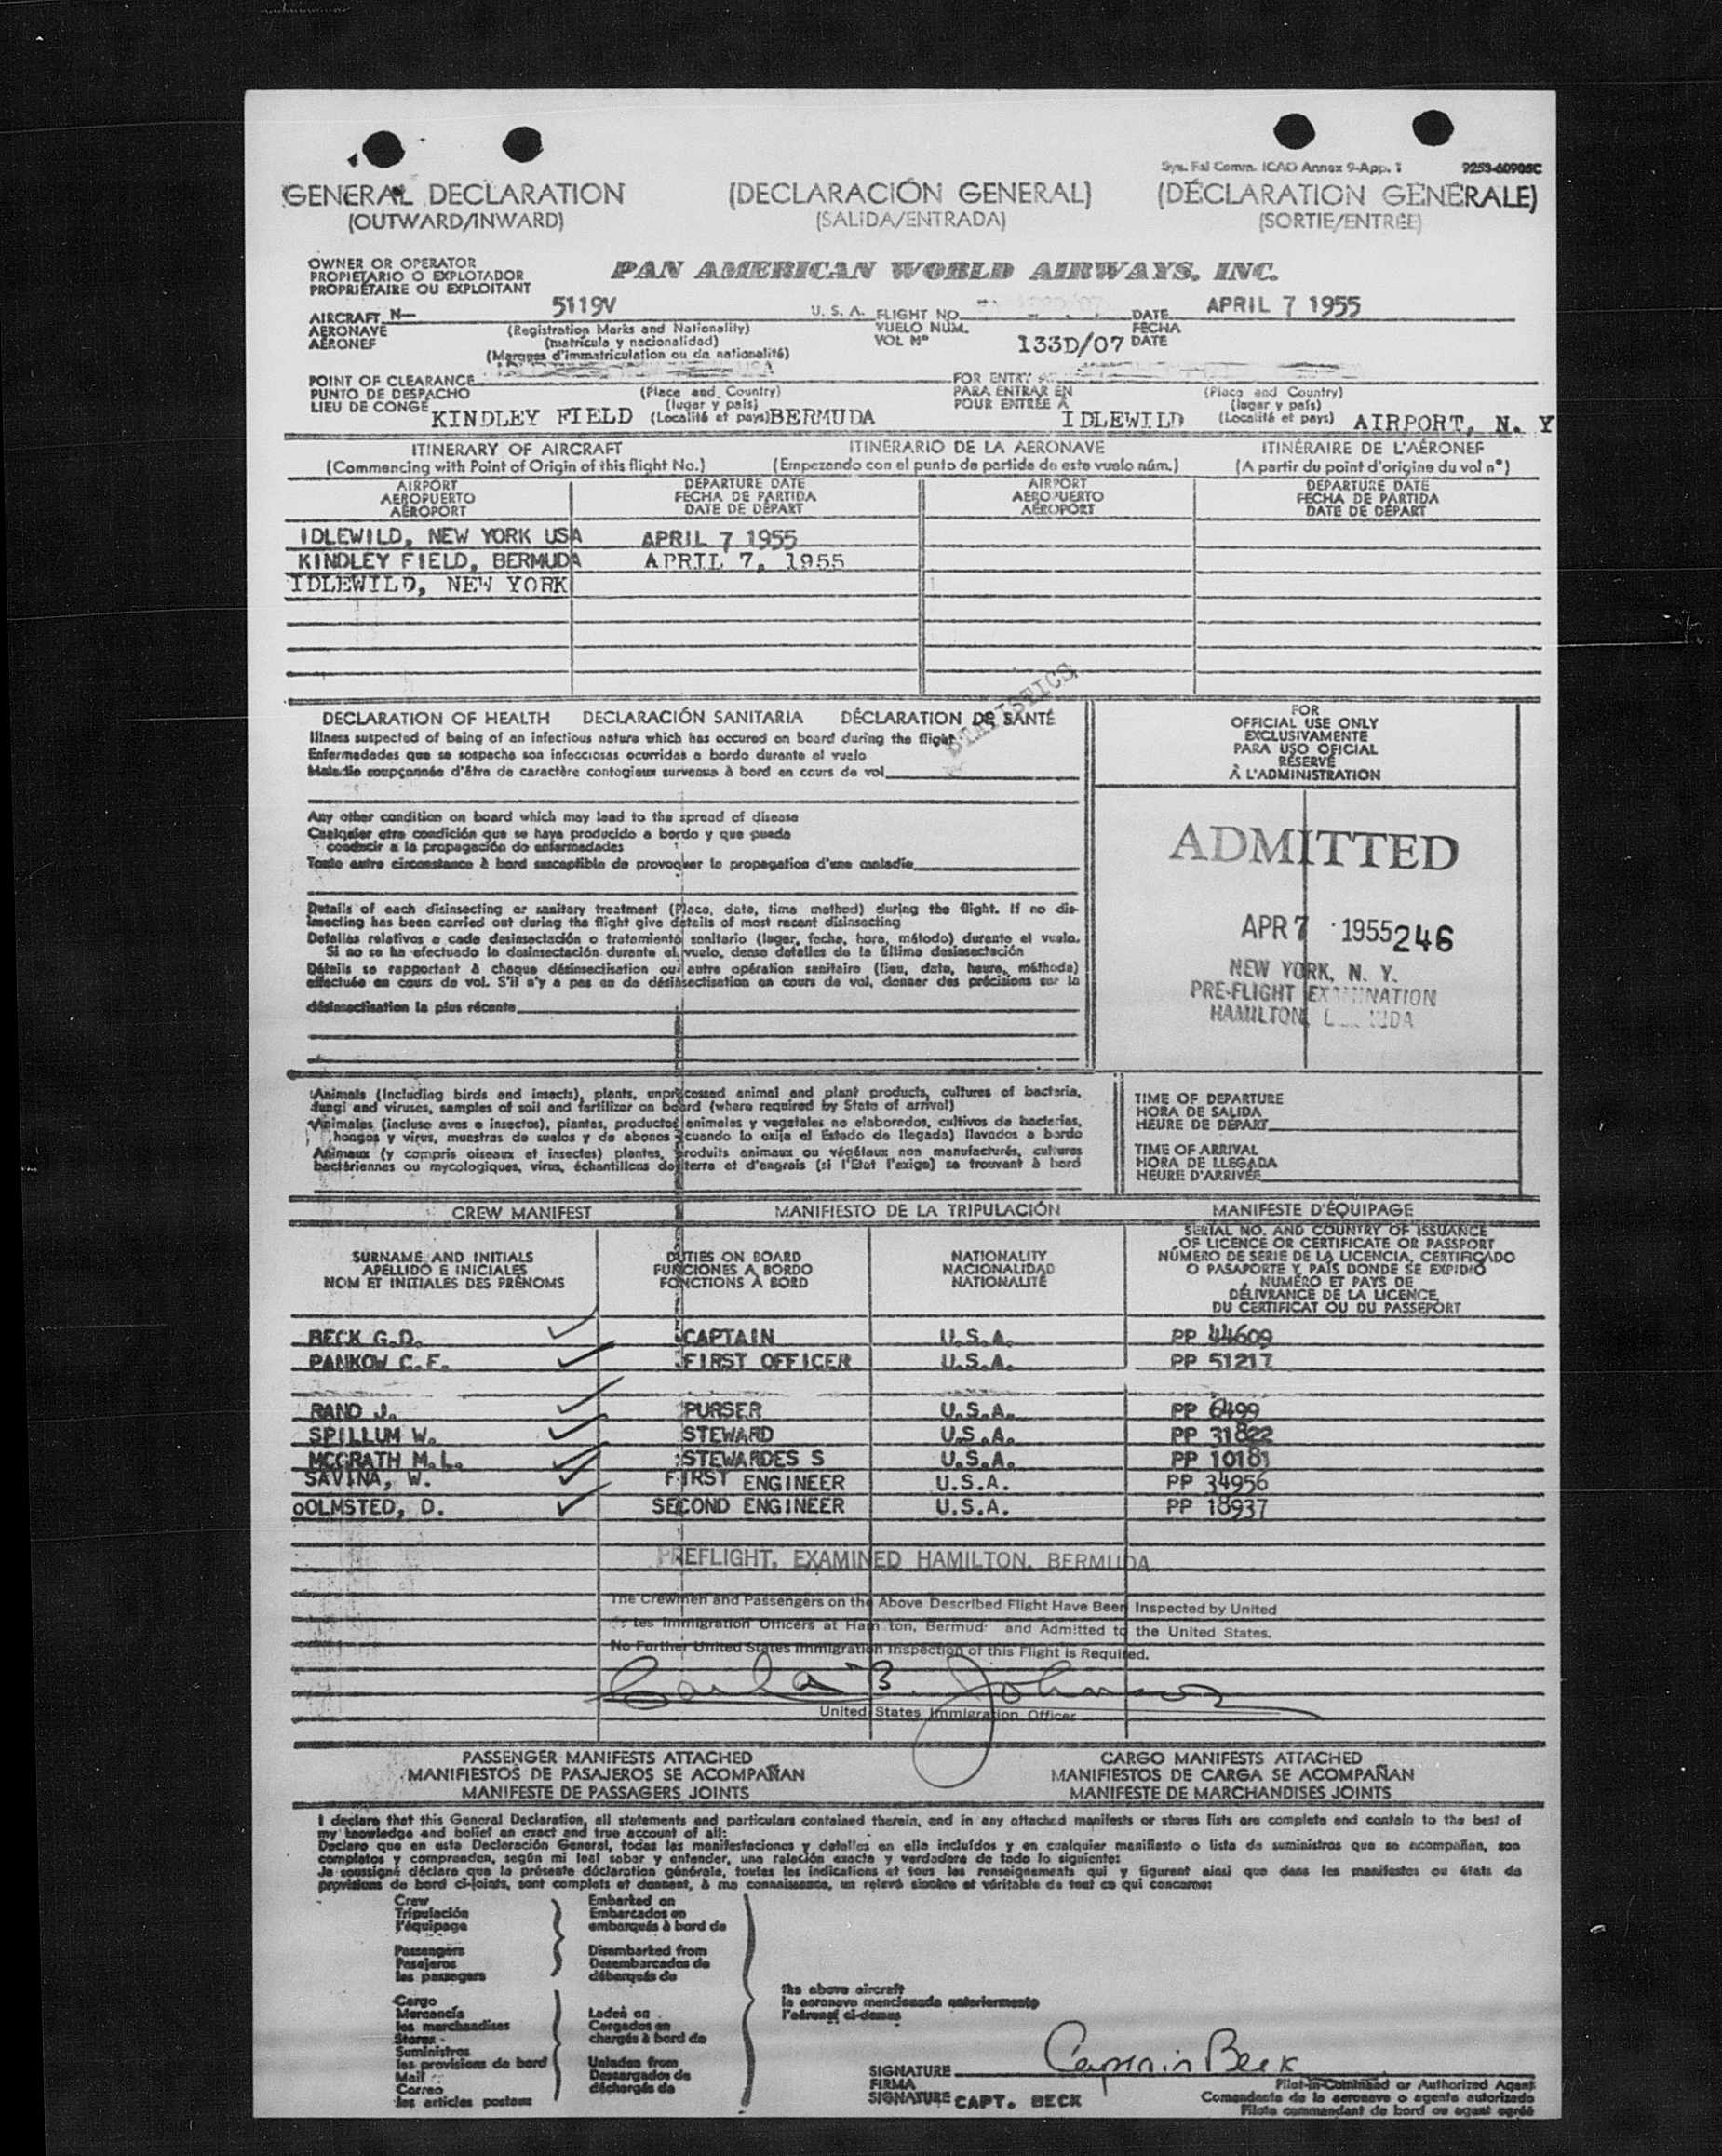 Sys. Fal Comm. ICAO Annex 9-App. 1 9253-60905C
GENERAL DECLARATION (DECLARACIÓN GENERAL) (DÉCLARATION GÉNÉRALE)
(OUTWARD/INWARD) (SALIDA/ENTRADA) (SORTIE/ENTRÉE)
OWNER OR OPERATOR
PROPIETARIO O EXPLOTADOR
PROPRIÉTAIRE OU EXPLOITANT
PAN AMERICAN WORLD AIRWAYS, INC.
AIRCRAFT N— 5119V U. S. A. FLIGHT NO. DATE APRIL 7 1955
AERONAVE (Registration Marks and Nationality) VUELO NÚM. FECHA
AÉRONEF (matrícula y nacionalidad) VOL Nº 133D/07 DATE
(Marques d'immatriculation ou de nationalité)
POINT OF CLEARANCE (Place and Country) FOR ENTRY AT (Place and Country)
PUNTO DE DESPACHO (lugar y país) PARA ENTRAR EN (lugar y país)
LIEU DE CONGÉ KINDLEY FIELD (Localité et pays) BERMUDA POUR ENTRÉE À IDLEWILD (Localité et pays) AIRPORT, N. Y
ITINERARY OF AIRCRAFT ITINERARIO DE LA AERONAVE ITINÉRAIRE DE L'AÉRONEF
(Commencing with Point of Origin of this flight No.) (Empezando con el punto de partida de este vuelo núm.) (A partir du point d'origine du vol nº)
AIRPORT DEPARTURE DATE AIRPORT DEPARTURE DATE
AEROPUERTO FECHA DE PARTIDA AEROPUERTO FECHA DE PARTIDA
AÉROPORT DATE DE DÉPART AÉROPORT DATE DE DÉPART
IDLEWILD, NEW YORK USA APRIL 7 1955
KINDLEY FIELD, BERMUDA APRIL 7, 1955
IDLEWILD, NEW YORK
STATISTICS
DECLARATION OF HEALTH DECLARACIÓN SANITARIA DÉCLARATION DE SANTÉ
Illness suspected of being of an infectious nature which has occured on board during the flight
Enfermedades que se sospecha son infecciosas ocurridas a bordo durante el vuelo
Maladie soupçonnée d'être de caractère contagieux survenue à bord en cours de vol
FOR
OFFICIAL USE ONLY
EXCLUSIVAMENTE
PARA USO OFICIAL
RÉSERVÉ
À L'ADMINISTRATION
Any other condition on board which may lead to the spread of disease
Cualquier otra condición que se haya producido a bordo y que pueda
conducir a la propagación de enfermedades
Toute autre circonstance à bord susceptible de provoquer la propagation d'une maladie
ADMITTED
APR 7 1955 246
NEW YORK, N. Y.
PRE-FLIGHT EXAMINATION
HAMILTON, BERMUDA
Details of each disinsecting or sanitary treatment (Place, date, time method) during the flight. If no dis-
insecting has been carried out during the flight give details of most recent disinsecting
Detalles relativos a cada desinsectación o tratamiento sanitario (lugar, fecha, hora, método) durante el vuelo.
Si no se ha efectuado la desinsectación durante el vuelo, dense detalles de la última desinsectación
Détails se rapportant à chaque désinsectisation ou autre opération sanitaire (lieu, date, heure, méthode)
effectuée en cours de vol. S'il n'y a pas eu de désinsectisation en cours de vol, donner des précisions sur la
désinsectisation la plus récente
Animals (including birds and insects), plants, unprocessed animal and plant products, cultures of bacteria,
fungi and viruses, samples of soil and fertilizer on board (where required by State of arrival)
Animales (incluso aves e insectos), plantas, productos animales y vegetales no elaborados, cultivos de bacterias,
hongos y virus, muestras de suelos y de abonos (cuando lo exija el Estado de llegada) llevados a bordo
Animaux (y compris oiseaux et insectes) plantes, produits animaux ou végétaux non manufacturés, cultures
bactériennes ou mycologiques, virus, échantillons de terre et d'engrais (si l'Etat l'exige) se trouvant à bord
TIME OF DEPARTURE
HORA DE SALIDA
HEURE DE DÉPART
TIME OF ARRIVAL
HORA DE LLEGADA
HEURE D'ARRIVÉE
CREW MANIFEST MANIFIESTO DE LA TRIPULACIÓN MANIFESTE D'ÉQUIPAGE
SURNAME AND INITIALS
APELLIDO E INICIALES
NOM ET INITIALES DES PRÉNOMS
DUTIES ON BOARD
FUNCIONES A BORDO
FONCTIONS À BORD
NATIONALITY
NACIONALIDAD
NATIONALITÉ
SERIAL NO. AND COUNTRY OF ISSUANCE
OF LICENCE OR CERTIFICATE OR PASSPORT
NÚMERO DE SERIE DE LA LICENCIA, CERTIFICADO
O PASAPORTE Y PAÍS DONDE SE EXPIDIÓ
NUMÉRO ET PAYS DE
DÉLIVRANCE DE LA LICENCE
DU CERTIFICAT OU DU PASSEPORT
BECK G.D. CAPTAIN U.S.A. PP 44609
PANKOW C.F. FIRST OFFICER U.S.A. PP 51217
RAND J. PURSER U.S.A. PP 6499
SPILLUM W. STEWARD U.S.A. PP 31822
MCGRATH M.L. STEWARDES S U.S.A. PP 10181
SAVINA, W. FIRST ENGINEER U.S.A. PP 34956
OOLMSTED, D. SECOND ENGINEER U.S.A. PP 18937
PREFLIGHT, EXAMINED HAMILTON, BERMUDA
The Crewmen and Passengers on the Above Described Flight Have Been Inspected by United
States Immigration Officers at Hamilton, Bermuda and Admitted to the United States.
No Further United States Immigration Inspection of this Flight is Required.
Carla B. Johnson
United States Immigration Officer
PASSENGER MANIFESTS ATTACHED CARGO MANIFESTS ATTACHED
MANIFIESTOS DE PASAJEROS SE ACOMPAÑAN MANIFIESTOS DE CARGA SE ACOMPAÑAN
MANIFESTE DE PASSAGERS JOINTS MANIFESTE DE MARCHANDISES JOINTS
I declare that this General Declaration, all statements and particulars contained therein, and in any attached manifests or stores lists are complete and contain to the best of
my knowledge and belief an exact and true account of all:
Declaro que en esta Declaración General, todas las manifestaciones y detalles en ella incluídos y en cualquier manifiesto o lista de suministros que se acompañan, son
completos y comprenden, según mi leal saber y entender, una relación exacta y verdadera de todo lo siguiente:
Je soussigné déclare que la présente déclaration générale, toutes les indications et tous les renseignements qui y figurent ainsi que dans les manifestes ou états de
provisions de bord ci-joints, sont complets et donnent, à ma connaissance, un relevé sincère et véritable de tout ce qui concerne:
Crew
Tripulación
l'équipage
Passengers
Pasajeros
les passagers
Embarked on
Embarcados en
embarqués à bord de
Disembarked from
Desembarcados de
débarqués de
Cargo
Mercancía
les marchandises
Stores
Suministros
les provisions de bord
Mail
Correo
les articles postaux
Laden on
Cargados en
chargés à bord de
Unladen from
Descargados de
déchargés de
the above aircraft
la aeronave mencionada anteriormente
l'aéronef ci-dessus
SIGNATURE Captain Beck
FIRMA
SIGNATURE CAPT. BECK
Pilot-in-Command or Authorized Agent
Comandante de la aeronave o agente autorizado
Pilote commandant de bord ou agent agréé